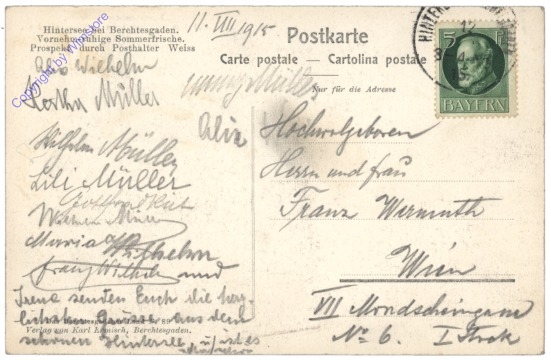 Hintersee bei Berchtesgaden.
Vornehme ruhige Sommerfrische.
Prospekt durch Posthalter Weiss
11. VIII 1915
Postkarte
Carte postale — Cartolina postale
Nur für die Adresse
Copyright by Winstore
5
BAYERN
Wilhelm
Müller
Müller
Wilhelm Müller
Lili Müller
Maria Wilhelm
Franz Wilhelm und
Irena senden Euch die herz-
lichsten Grüße aus dem
schönen Hintersee
Verlag von Karl Ermisch, Berchtesgaden.
Hochwolgeboren
Herrn und Frau
Franz Wermuth
Wien
VII Mondscheingasse
No 6. I Stok